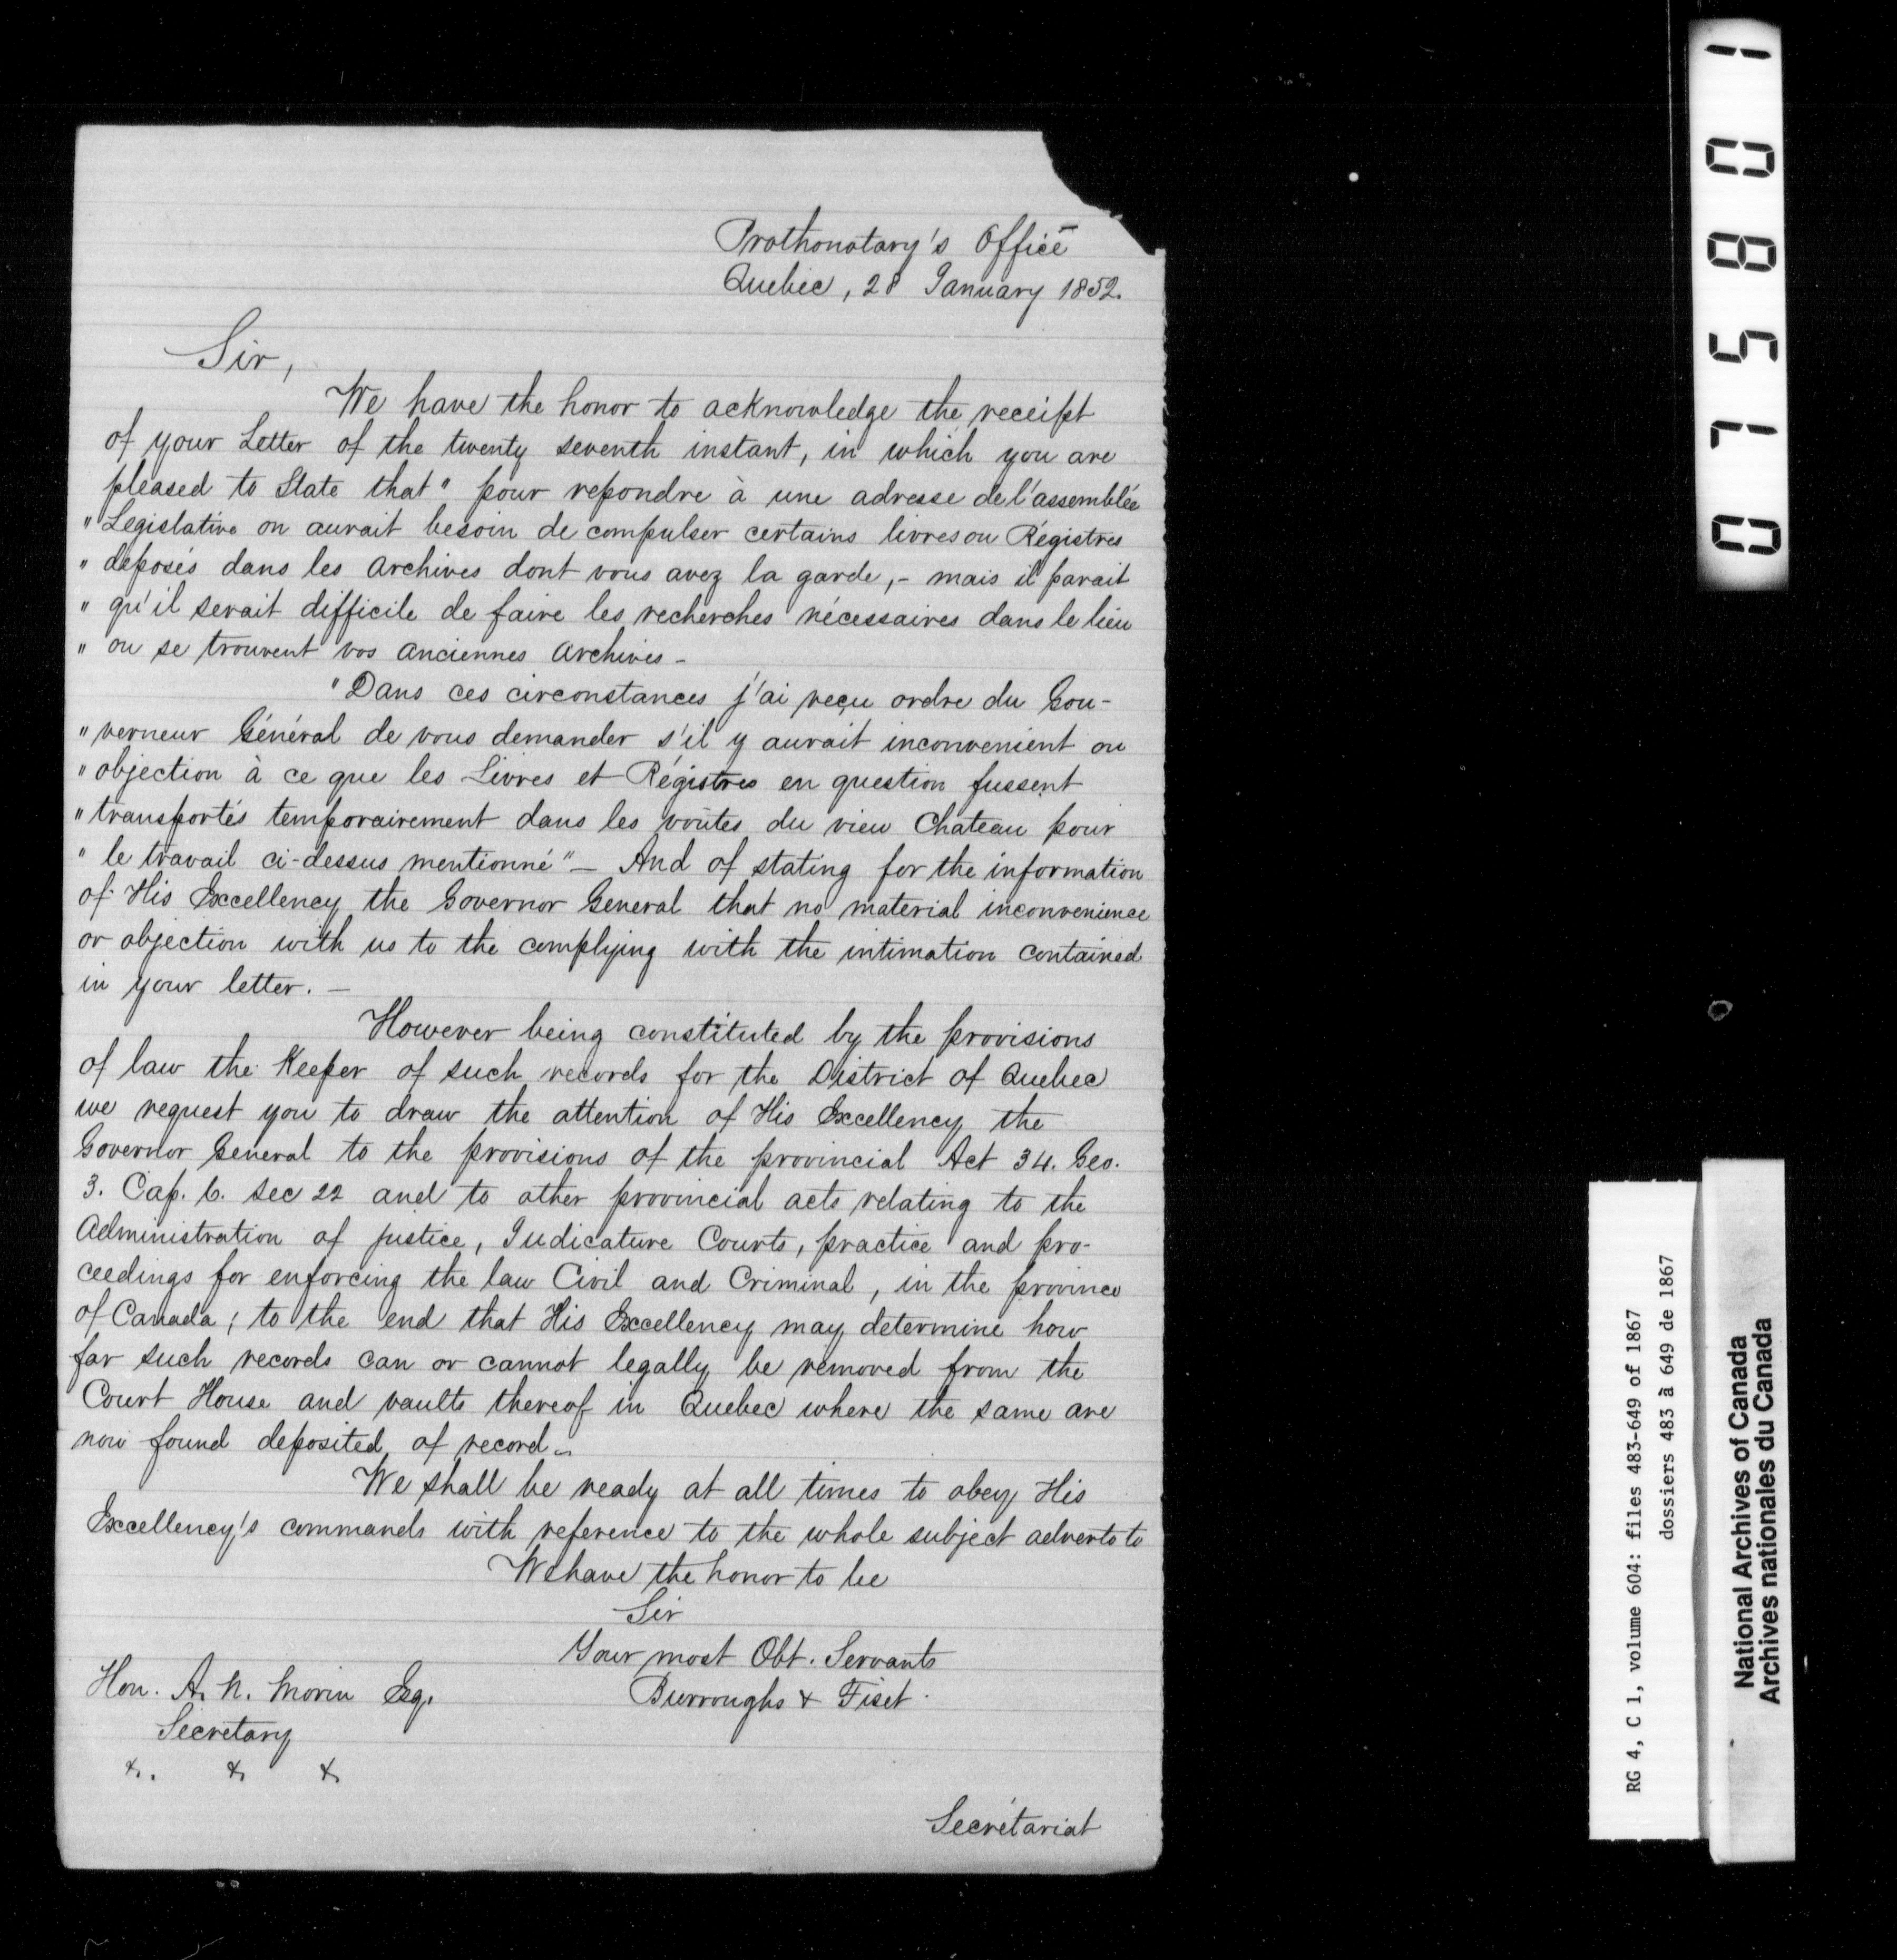 Prothonotary's Office
Quebec, 28 January 1852.
Sir,
We have the honor to acknowledge the receipt
of your Letter of the twenty seventh instant, in which you are
pleased to State that " pour repondre à une adresse de l'assemblée
" Legislative on aurait besoin de compulser certains livres ou Régistres
" déposés dans les Archives dont vous avez la garde, - mais il parait
" qu'il serait difficile de faire les recherches nécessaires dans le lieu
" ou se trouvent vos anciennes archives -
" Dans ces circonstances j'ai reçu ordre du Gou-
" verneur Général de vous demander s'il y aurait inconvenient ou
" objection à ce que les Livres et Régistres en question fussent
" transportés temporairement dans les voûtes du vieu Chateau pour
" le travail ci-dessus mentionné " — And of stating for the information
of His Excellency the Governor General that no material inconvenience
or objection with us to the complying with the intimation contained
in your letter. —
However being constituted by the provisions
of law the Keeper of such records for the District of Quebec
we request you to draw the attention of His Excellency the
Governor General to the provisions of the provincial Act 34. Geo.
3. Cap. 6. Sec 22 and to other provincial acts relating to the
Administration of justice, Judicature Courts, practice and pro-
ceedings for enforcing the law Civil and Criminal, in the province
of Canada ; to the end that His Excellency may determine how
far such records can or cannot legally be removed from the
Court House and vaults thereof in Quebec where the same are
now found deposited of record -
We shall be ready at all times to obey His
Excellency's commands with reference to the whole subject adverts to
We have the honor to be
Sir
Your most Obt. Servants
Burroughs & Fiset.
Hon. A. N. Morin Esq.
Secretary
&. & &
Secrétariat
0 7 5 8 0 1
RG 4, C 1, volume 604: files 483-649 of 1867
dossiers 483 à 649 de 1867
National Archives of Canada
Archives nationales du Canada